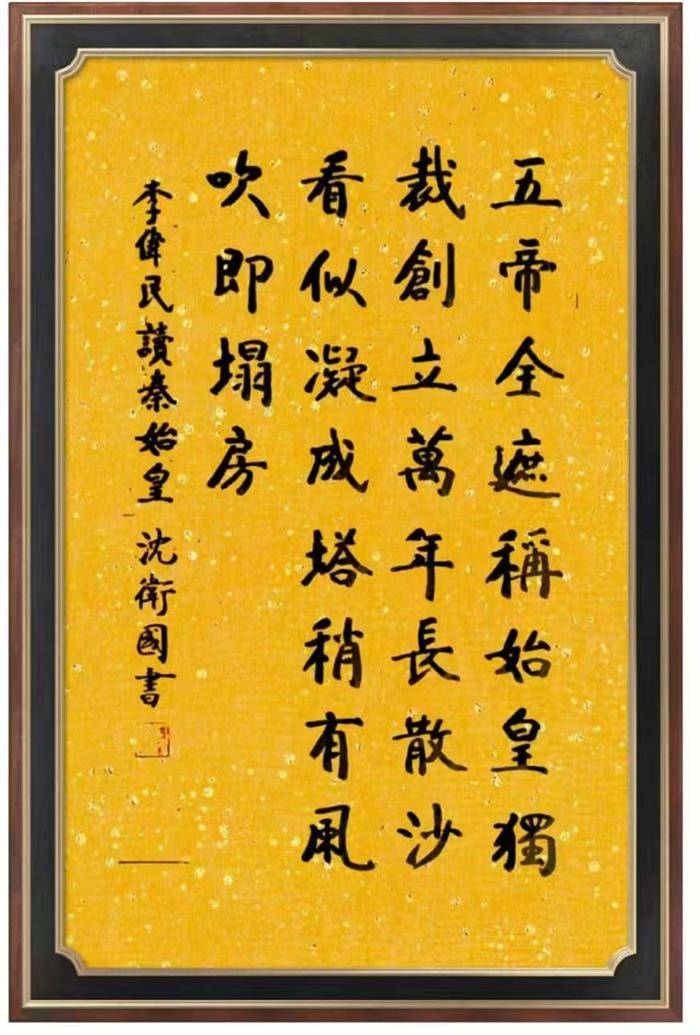 五帝全遮稱始皇獨
裁創立萬年長散沙
看似凝成塔稍有風
吹即塌房
李偉民讀秦始皇 沈衛國書